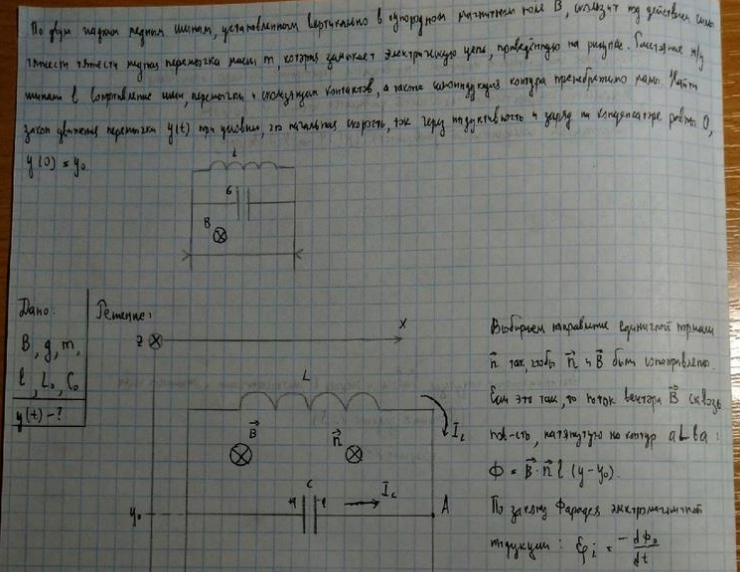 По двум гладким медным шинам, установленным вертикально в однородном магнитном поле B, скользит под действием силы
тяжести тяжести медная перемычка массы m, которая замыкает электрическую цепь, приведённую на рисунке. Расстояние м/у
шинами l. Сопротивление шин, перемычки и скользящих контактов, а также самоиндукция контура пренебрежимо малы. Найти
закон движения перемычки y(t) при условии, что начальная скорость, ток через индуктивность и заряд на конденсаторе равны 0,
y(0) = y₀
L
B
Дано:
B, g, m,
l, L₀, C₀
y(t) - ?
Решение:
z
x
L
I
B⃗
n⃗
C
I
y₀
A
Выбираем направление единичной нормали
n⃗ так, чтобы n⃗ и B⃗ были
Если это так, то поток вектора B⃗ сквозь
пов-сть, натянутую на контур aLba:
Ф = B⃗ · n⃗ l (y - y₀).
По закону Фарадея электромагнитной
индукции: ℰi = -dФ₀/dt